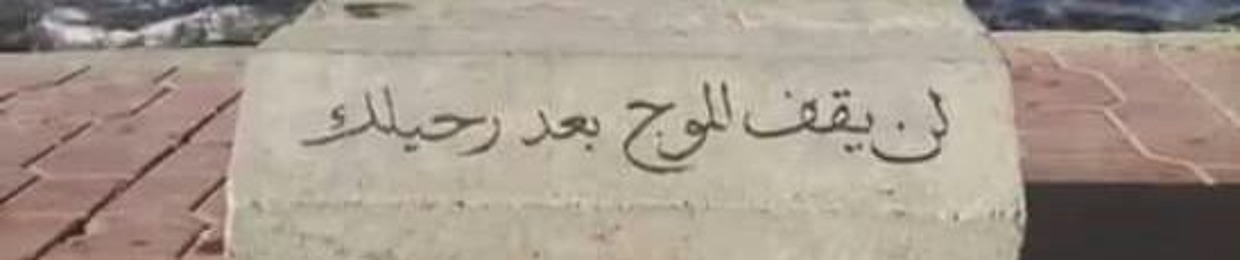 لن يقف الموج بعد رحيلك